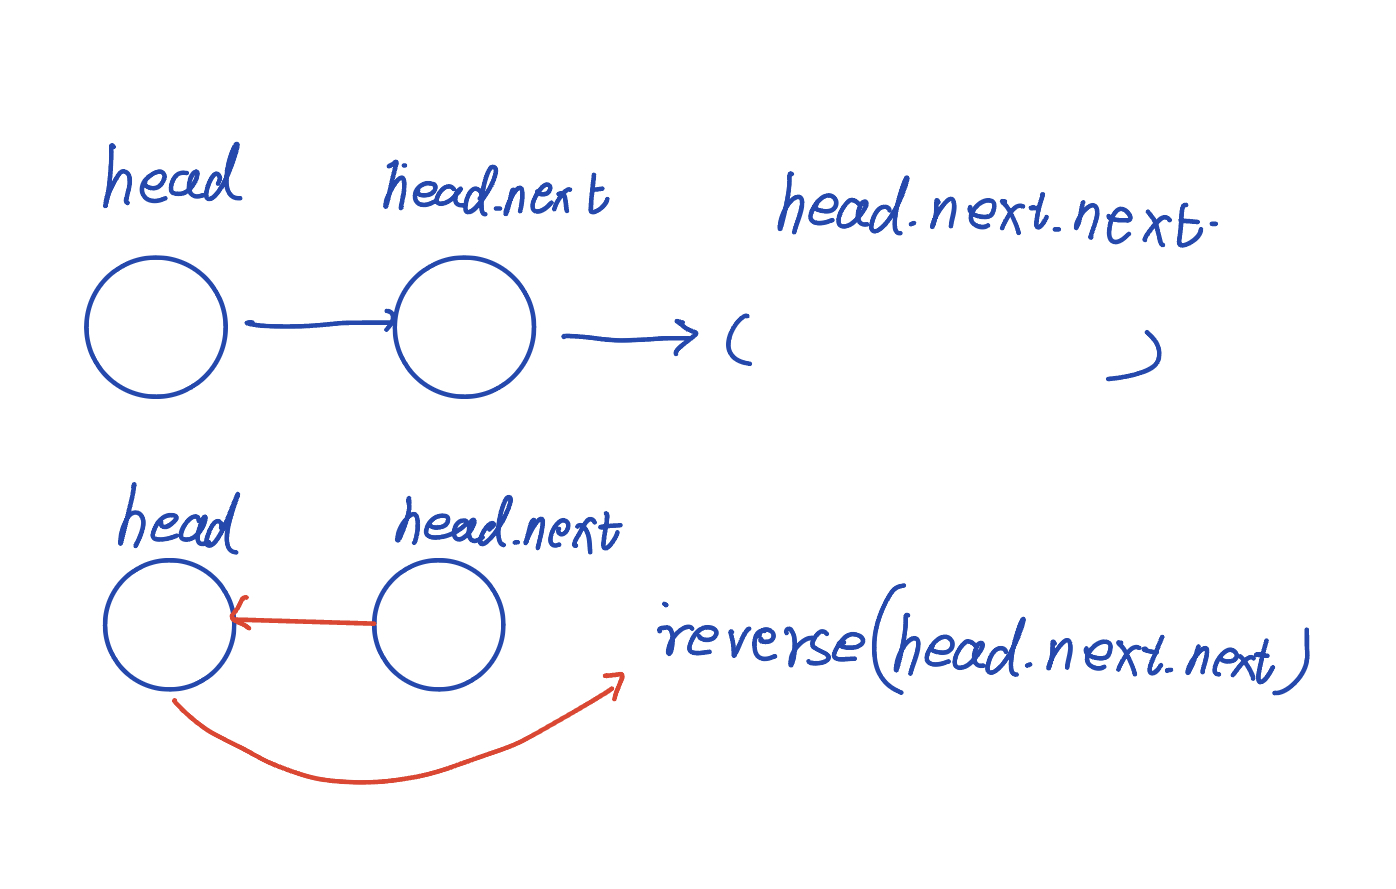 head head.next head.next.next.
( )
head head.next
reverse(head.next.next)